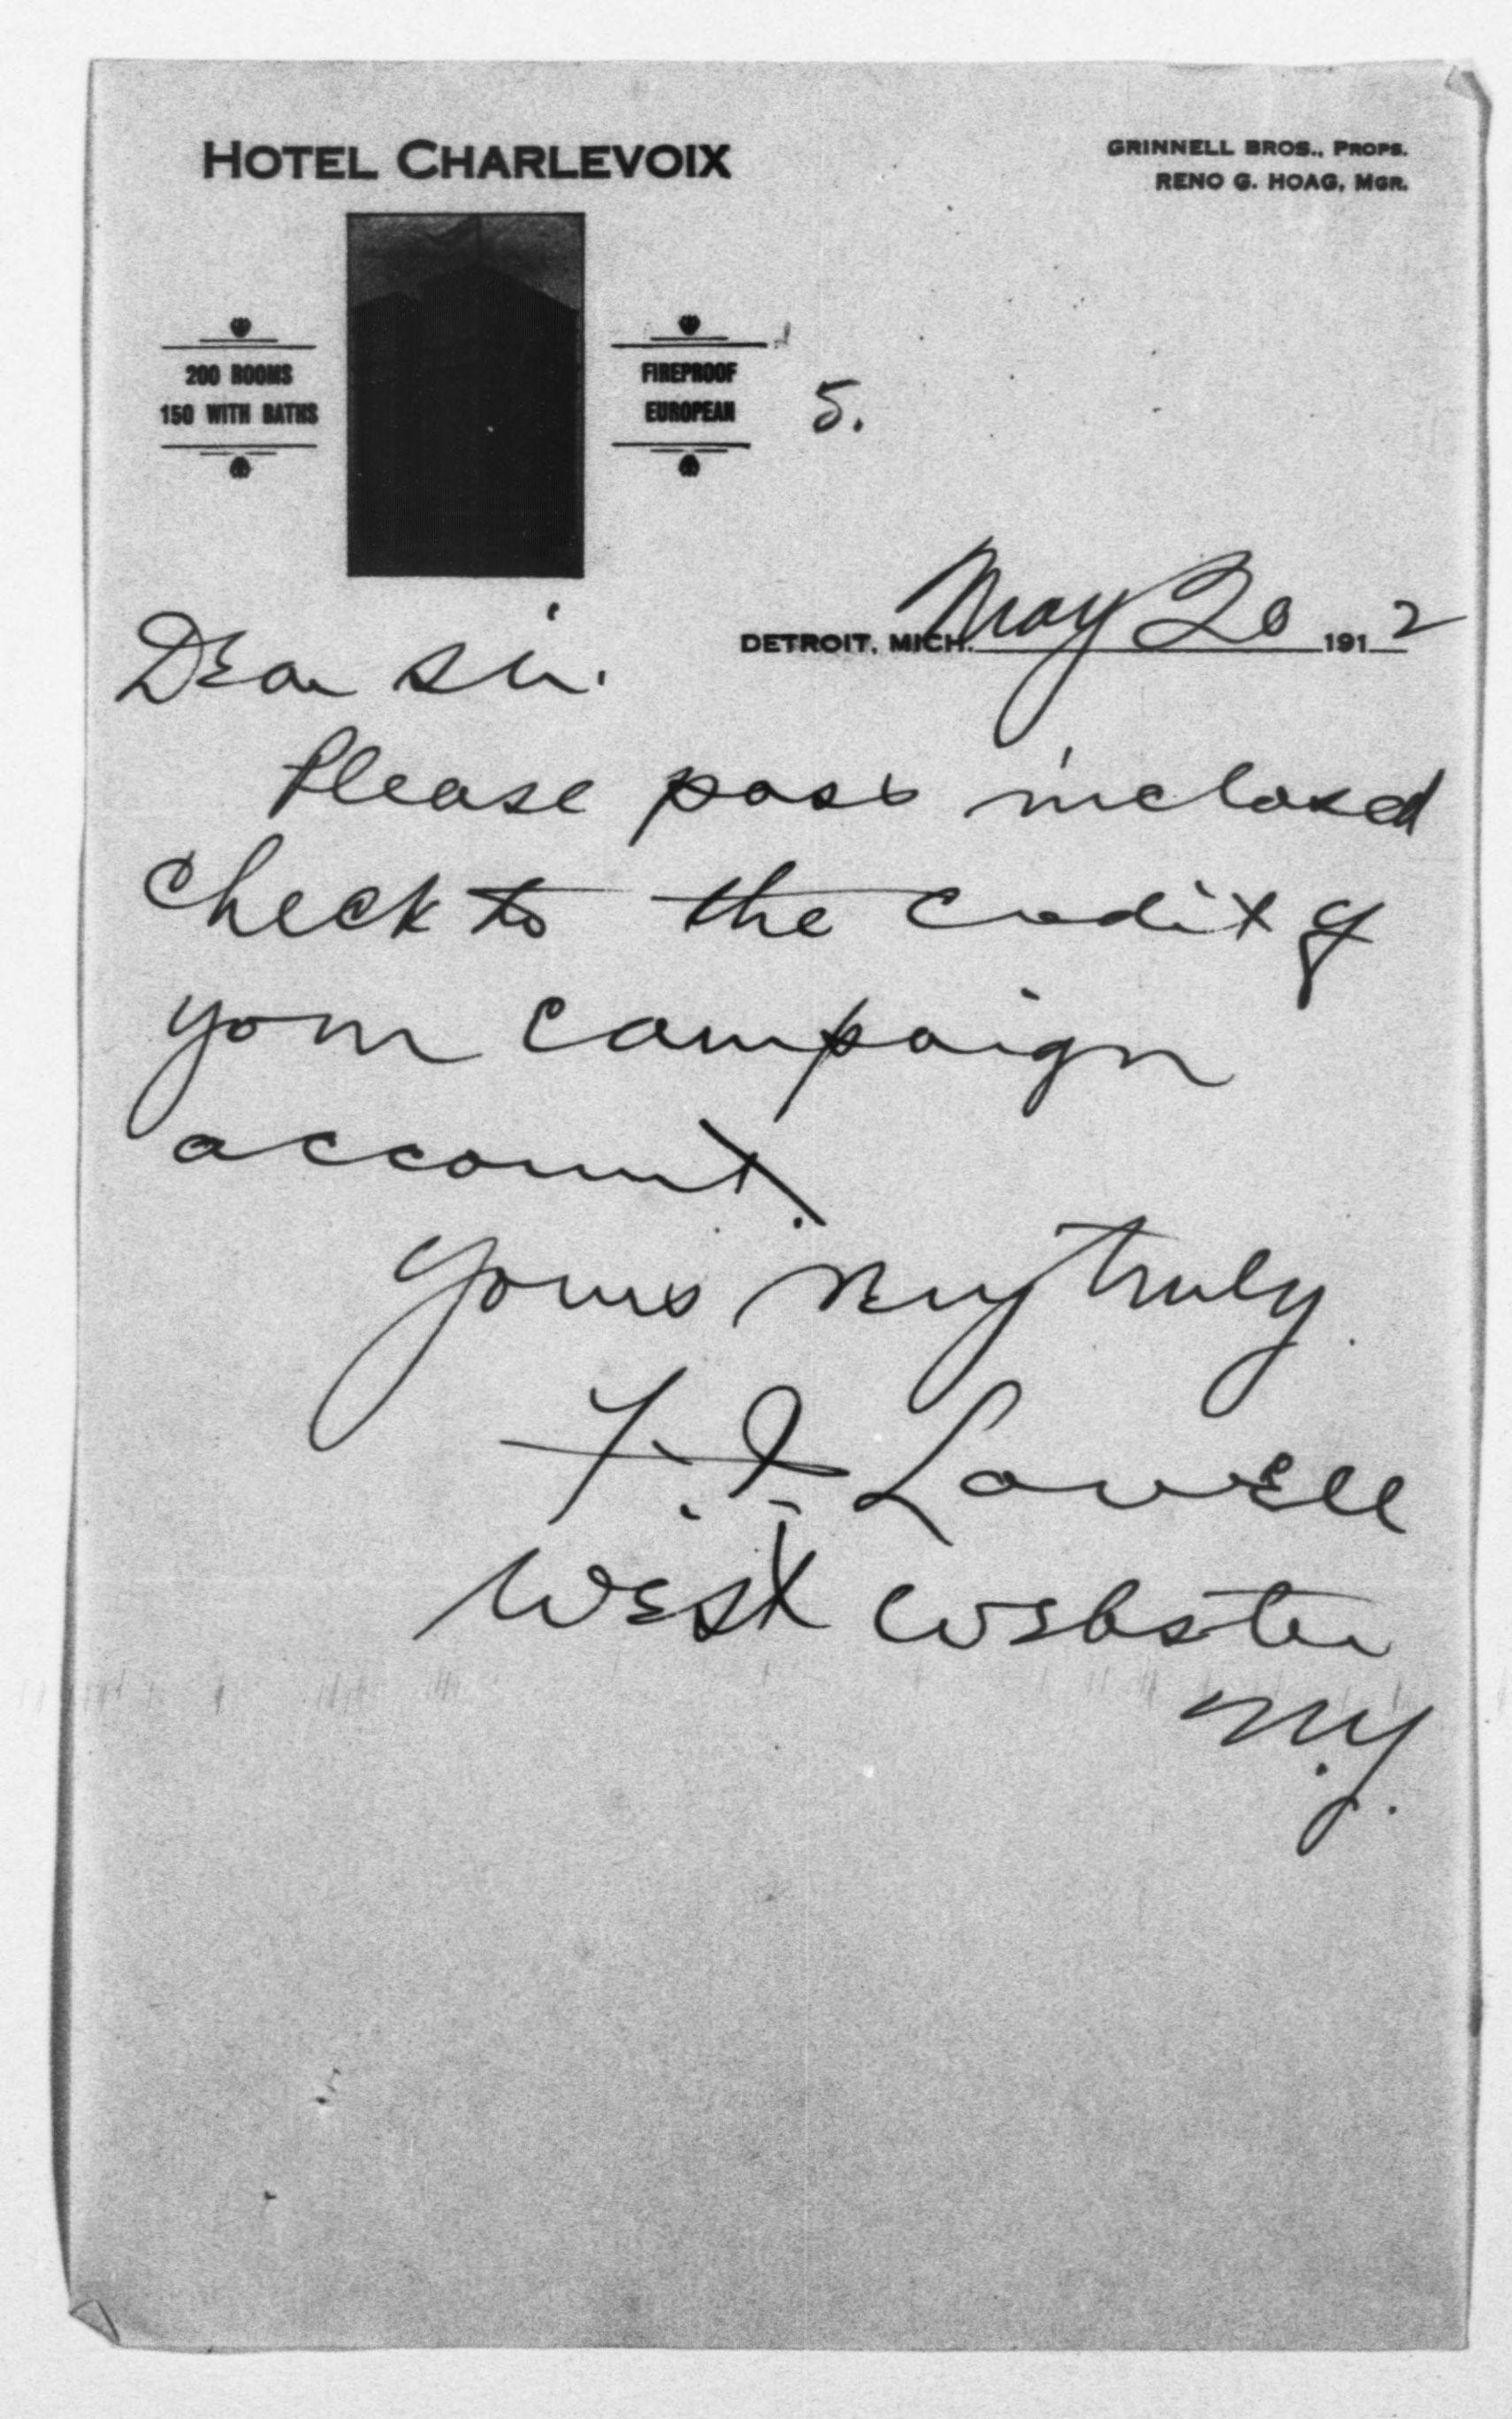 HOTEL CHARLEVOIX
GRINNELL BROS., PROPS.
RENO G. HOAG, MGR.
200 ROOMS
150 WITH BATHS
FIREPROOF
EUROPEAN
5.
DETROIT, MICH. May 20 1912
Dear Sir.
Please pass inclosed
check to the credit of
your campaign
account.
Yours very truly
F. I. Lowell
West Webster
N.Y.